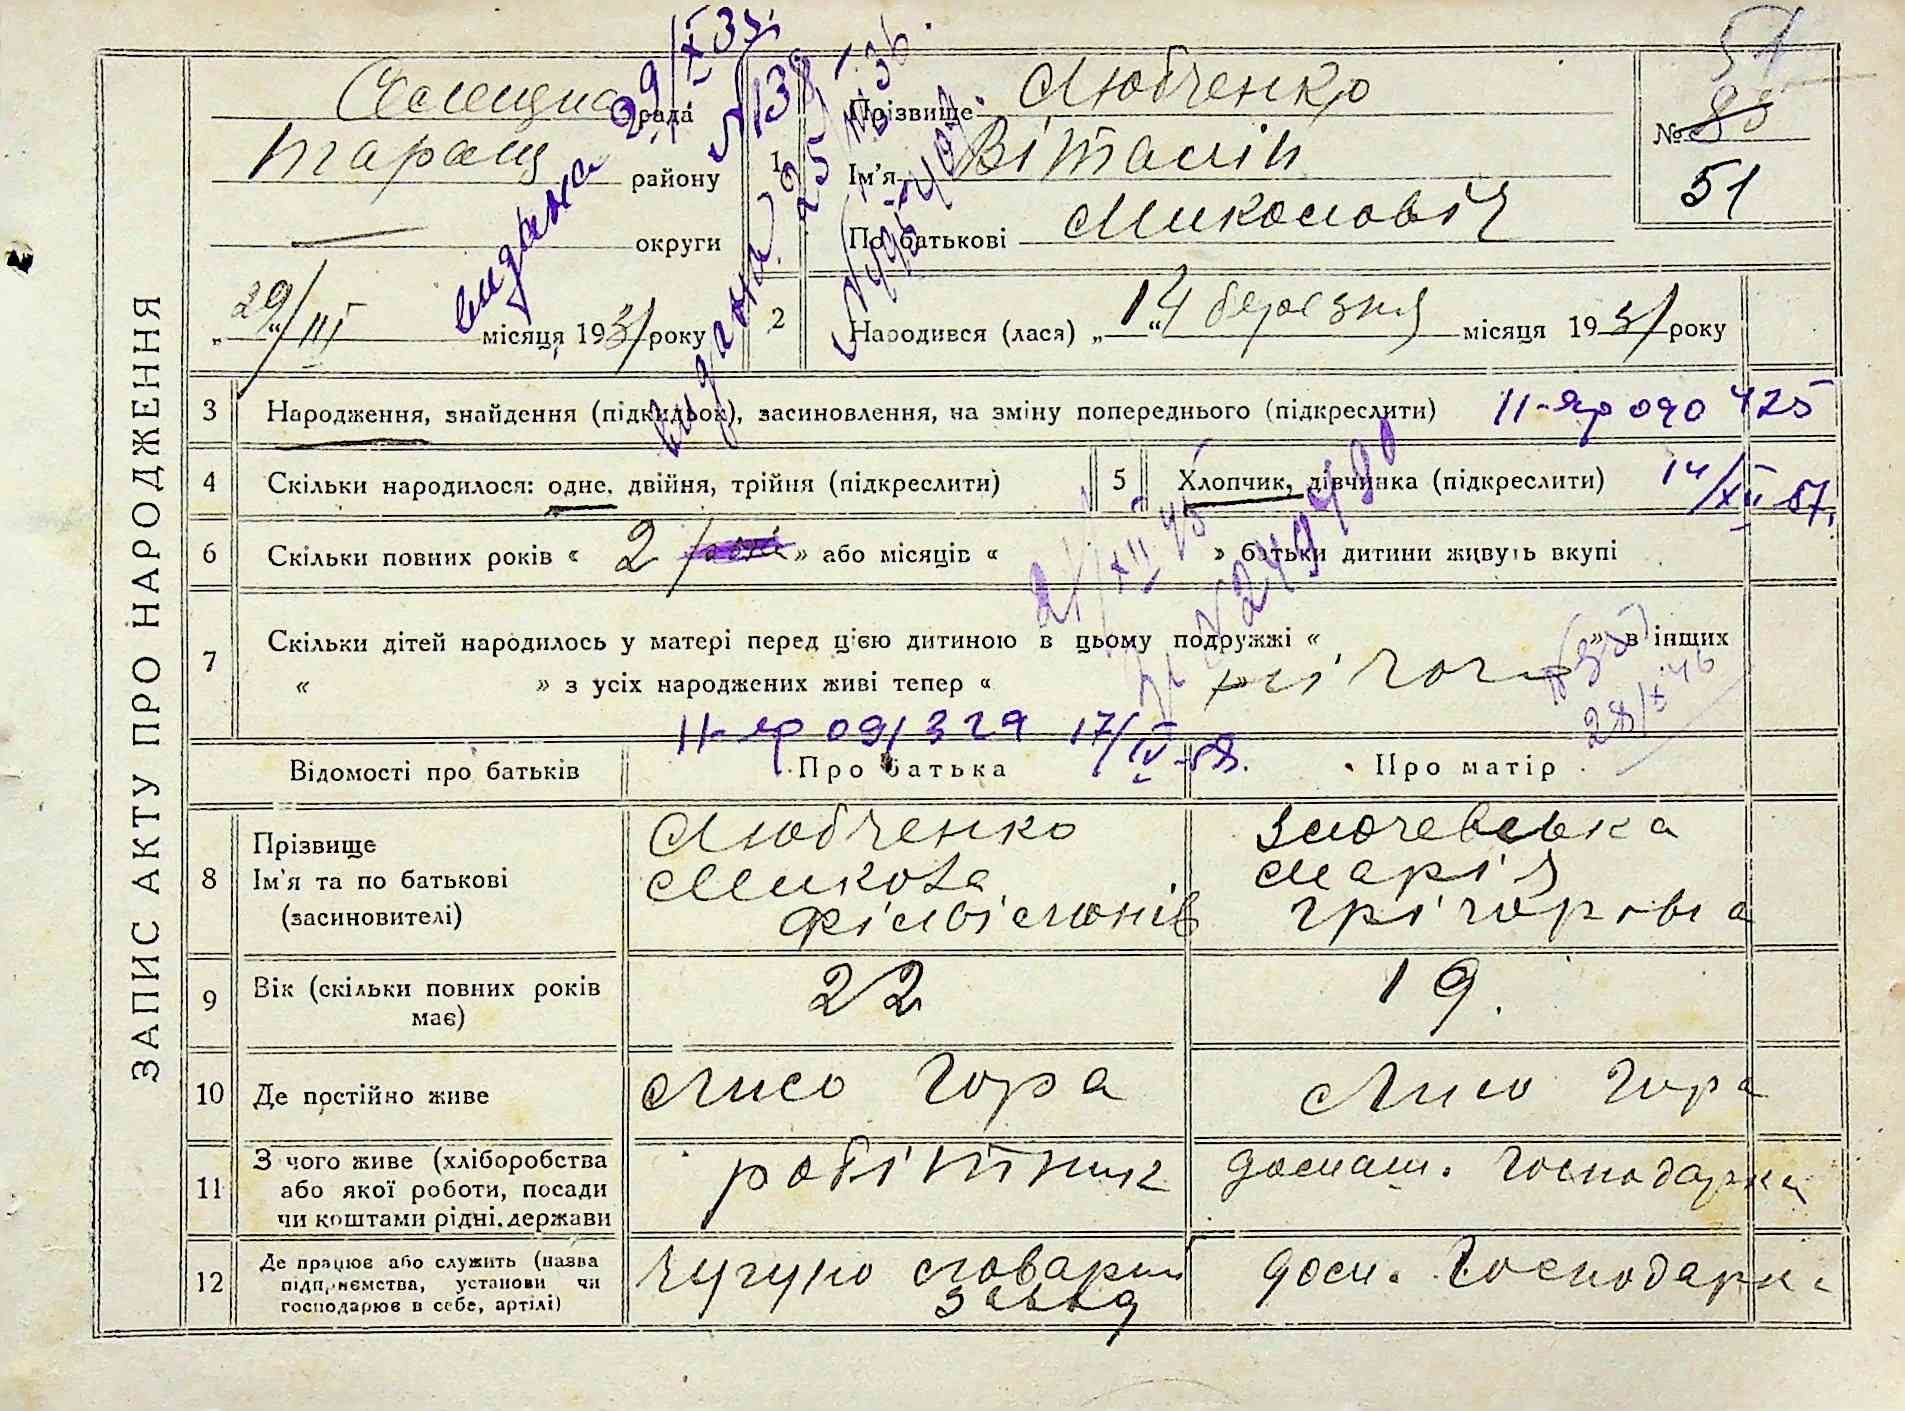 ЗАПИС АКТУ ПРО НАРОДЖЕННЯ
Селищна рада
Таращ району
— округи
„29/III“ місяця 1931 року
видана 29/X 33
№ 138
видана 25/ 36.
1
Прізвище Любченко
Ім'я Віталій
По батькові Миколовіч
№ 85
51
51
2 Народився (лася) „14“ березня місяця 1931 року
3 Народження, знайдення (підкидьок), засиновлення, на зміну попереднього (підкреслити) II-яр 090425
4 Скільки народилося: одне, двійня, трійня (підкреслити)
5 Хлопчик, дівчинка (підкреслити) 14/XII-57.
6 Скільки повних років « 2 » або місяців « » батьки дитини живуть вкупі
21/XII 45
7 Скільки дітей народилось у матері перед цією дитиною в цьому подружжі « » в інших
« » з усіх народжених живі тепер « нічого »
28/X 46
II-яр 091329 17/IV-58.
Відомості про батьків
Про батька
Про матір
8 Прізвище
Ім'я та по батькові
(засиновителі)
Любченко
Микола
Філімонів
Злочевська
Марія
Грігорівна
9 Вік (скільки повних років має)
22
19.
10 Де постійно живе
Лисо Гора
Лисо Гора
11 З чого живе (хліборобства
або якої роботи, посади
чи коштами рідні, держави
робітник
домаш. господарка
12 Де працює або служить (назва
підприємства, установи чи
господарює в себе, артілі)
Чугуно
завод
дом. господарк